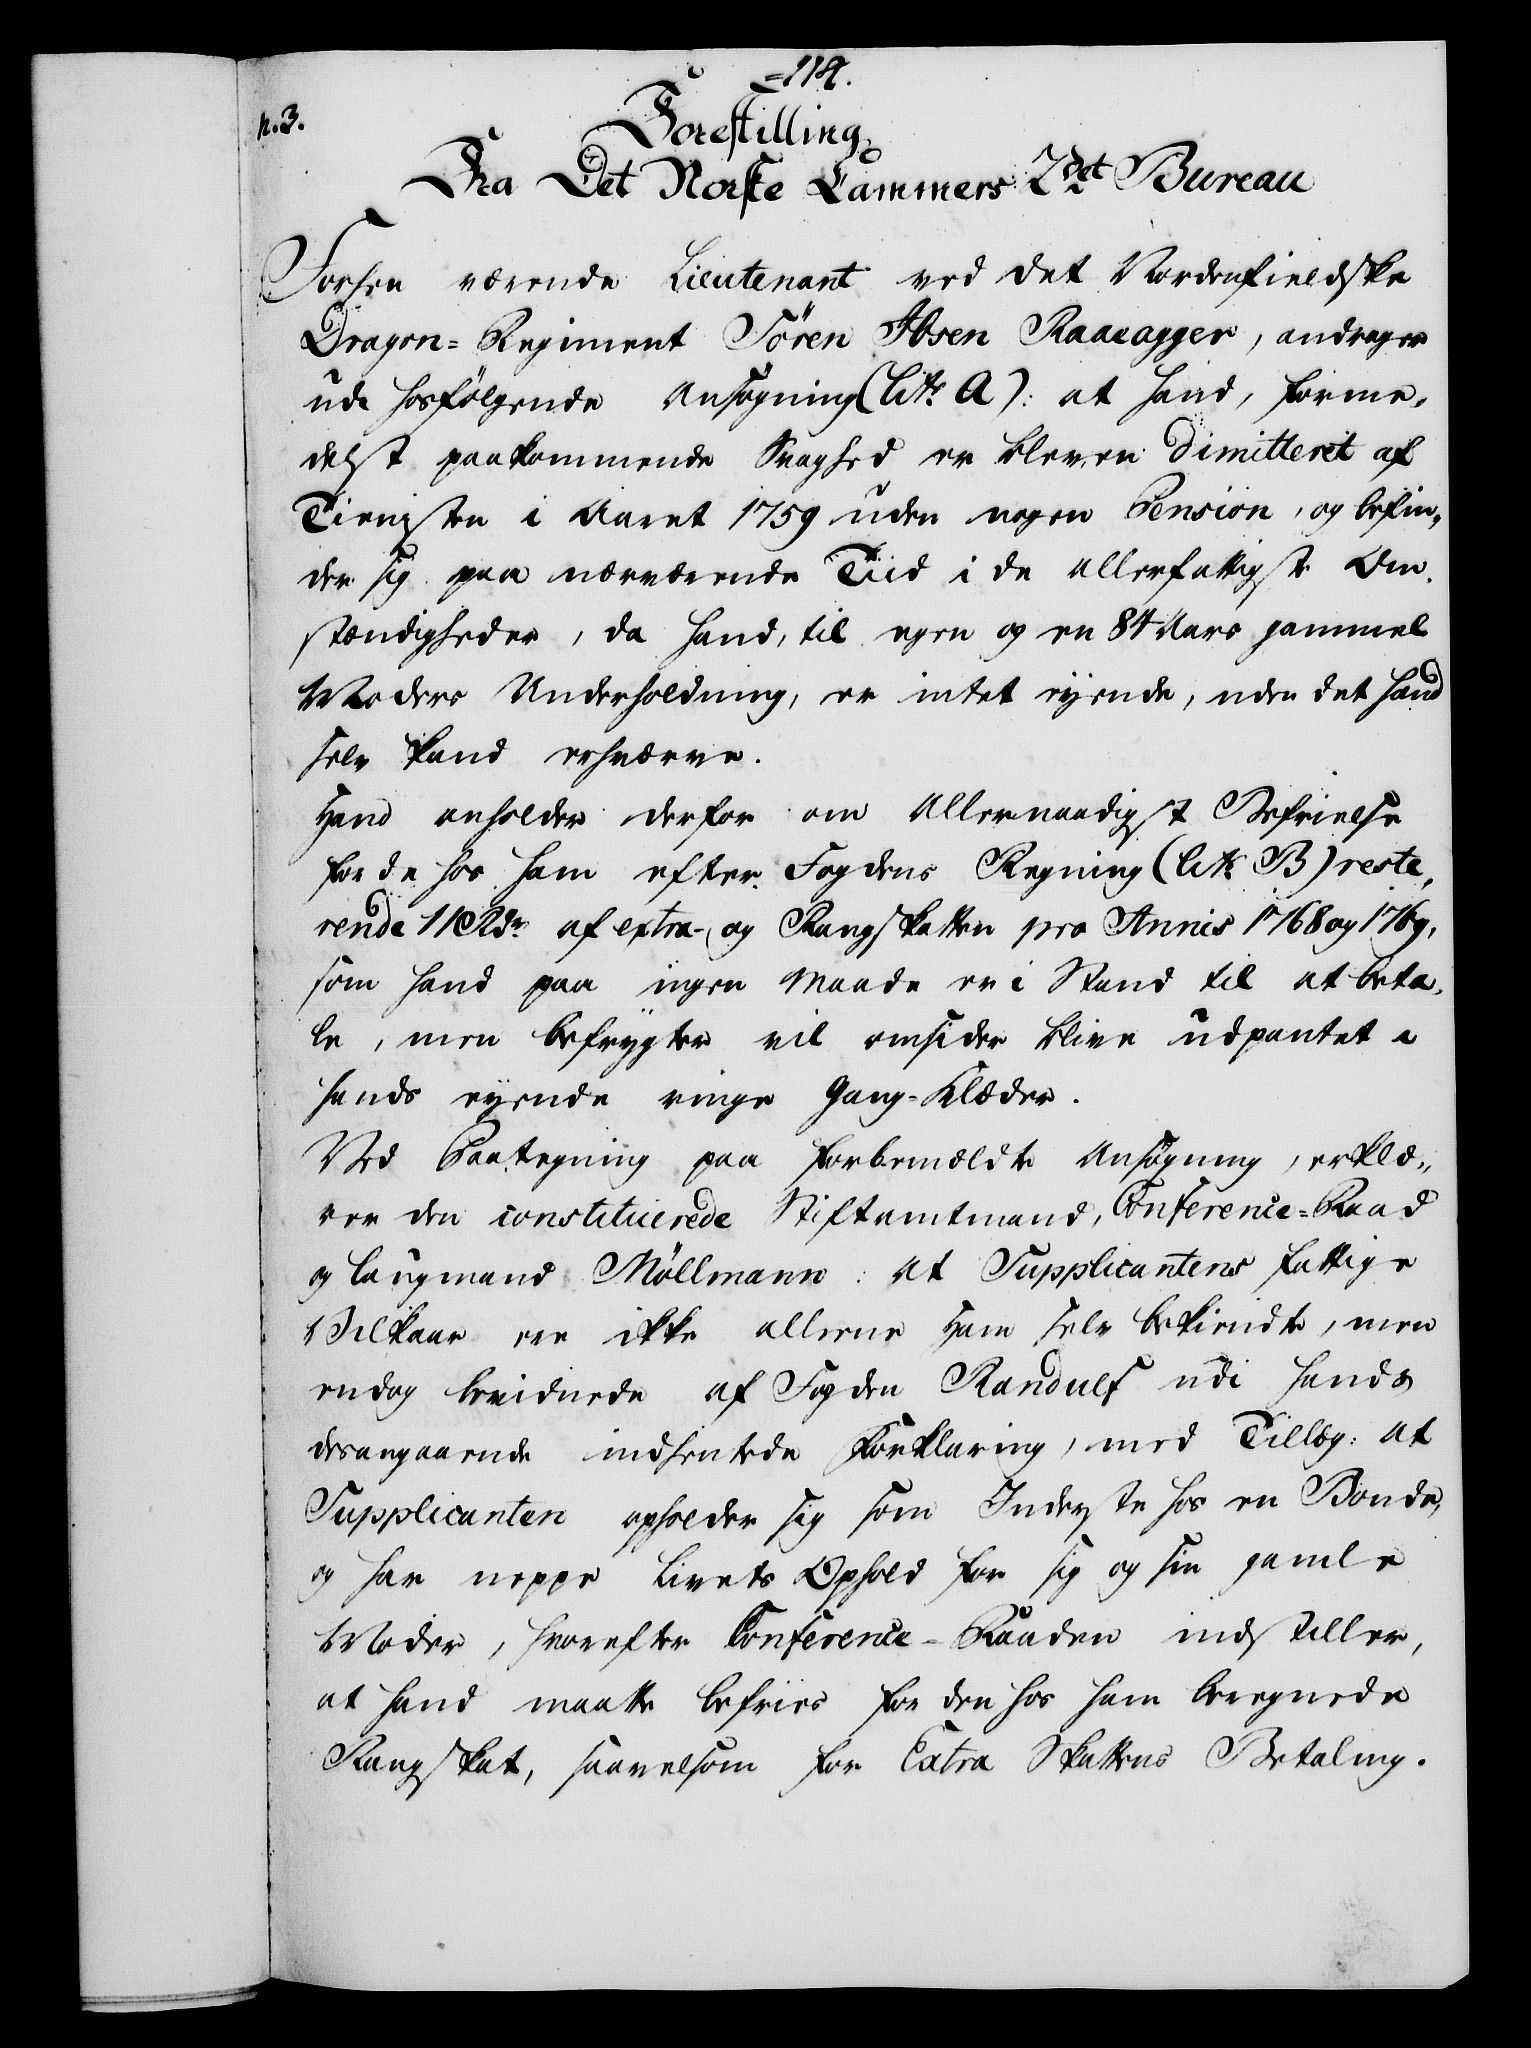 =114.
n. 3.
Forestilling
Fra Det Norske Cammers 2det Bureau
Forhen værende Lieutenant ved det Nordenfieldske
Dragon=Regiment Sören Ibsen Raaeagger, andrager
udi hosfölgende Ansögning (litr. A): at hand, forme,,
delst paakommende Svaghed er bleven dimitteret af
Tienesten i Aaret 1759 uden nogen Pension, og befin,,
der sig paa nærværende Tiid i de allerfattigste Om,,
stændigheder, da hand, til egen og en 84 Aars gammel
Moders Underholdning, er intet eyende, uden det hand
selv kand erhværve.
Hand anholder derfor om Allernaadigst Befrielse
for de hos ham efter Fogdens Regning (litr. B) reste,,
rende 11 Rdr. af extra- og Rangskatten pro Annis 1768 og 1769,
som hand paa ingen Maade er i Stand til at beta,,
le, men befrygter vil omsider blive udpantet i
hands eyende ringe Gang=Klæder.
Ved Paategning paa forbemældte Ansögning, erklæ,,
rer den constituerede Stiftamtmand, Conference=Raad
og Laugmand Möllmann: at Supplicantens fattige
Vilkaar ere ikke alleene Ham selv bekiendte, men
endog bevidnede af Fogden Randulf udi hands
desangaaende indhentede Forklaring, med Tillæg: at
Supplicanten opholder sig som Inderste hos en Bonde,
og har neppe Livets Ophold for sig og sin gamle
Moder, hvorefter Conference-Raaden indstiller,
at hand maatte befries for den hos ham beregnede
Rangskat, saavelsom for Extra Skattens Betaling.